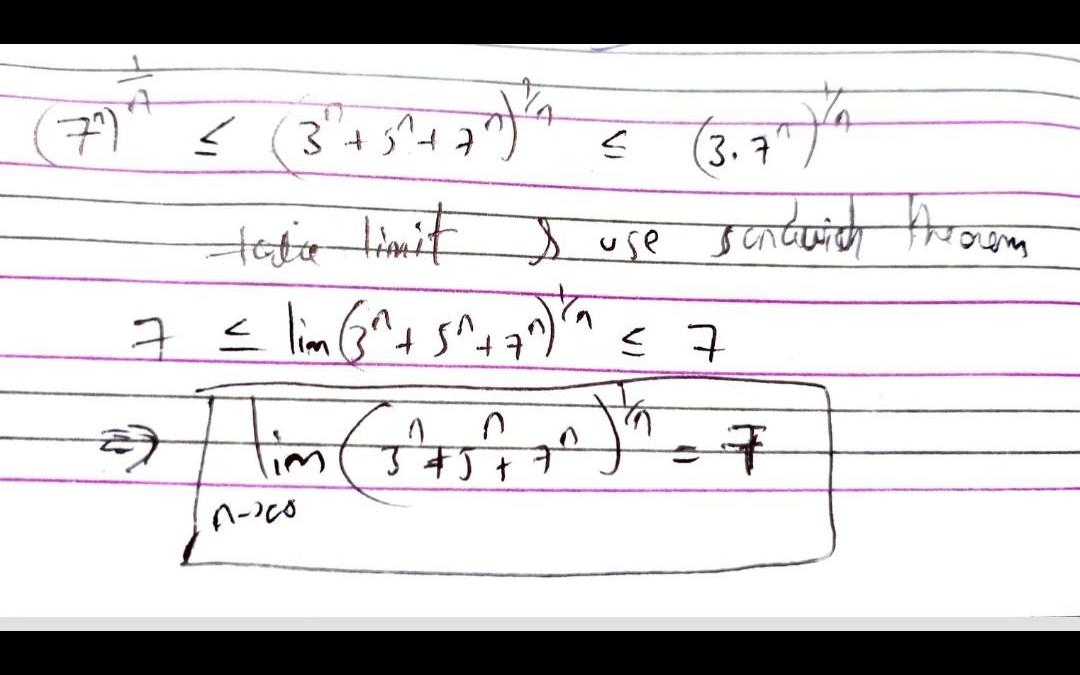 (7ⁿ)^{1/n} ≤ (3ⁿ + 5ⁿ + 7ⁿ)^{1/n} ≤ (3.7ⁿ)^{1/n}
take limit & use sandwich theorem
7 ≤ lim(3ⁿ + 5ⁿ + 7ⁿ)^{1/n} ≤ 7
⇒ lim (3ⁿ + 5ⁿ + 7ⁿ)^{1/n} = 7
n→∞